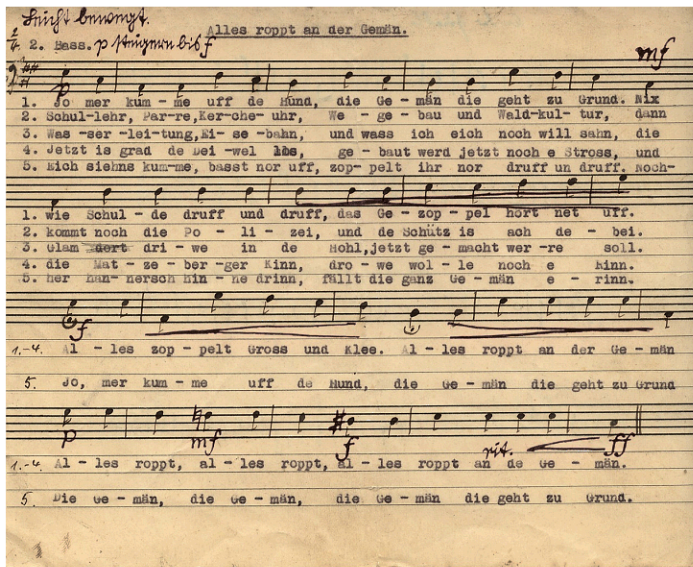 Leicht bewegt.
Alles roppt an der Gemän.
2/4 2. Bass. p steigern bis f
mf
p
1. Jo mer kum - me uff de Hund, die Ge - män die geht zu Grund. Nix
2. Schul-lehr, Par-re,Ker-che- uhr, We - ge - bau und Wald-kul - tur, dann
3. Was -ser -lei-tung,Ei- se -bahn, und wass ich eich noch will sahn, die
4. Jetzt is grad de Dei -wel los, ge - baut werd jetzt noch e Stross, und
5. Eich siehns kum-me, basst nor uff, zop- pelt ihr nor druff un druff. Noch-
1. wie Schul - de druff und druff, das Ge- zop - pel hört net uff.
2. kommt noch die Po - li - zei, und de Schütz is ach de - bei.
3. Glam dort dri - we in de Hohl,jetzt ge - macht wer -re soll.
4. die Mat - ze - ber -ger Kinn, dro - we wol - le noch e Rinn.
5. her han - nersch hin - ne drinn, fällt die ganz Ge - män e - rinn.
f
1.-4. Al - les zop - pelt Gross und Klee. Al - les roppt an der Ge - män
5. Jo, mer kum - me uff de Hund, die Ge - män die geht zu Grund
p mf f rit. ff
1.-4. Al - les roppt, al - les roppt, al - les roppt an de Ge - män.
5. Die Ge - män, die Ge - män, die Ge - män die geht zu Grund.